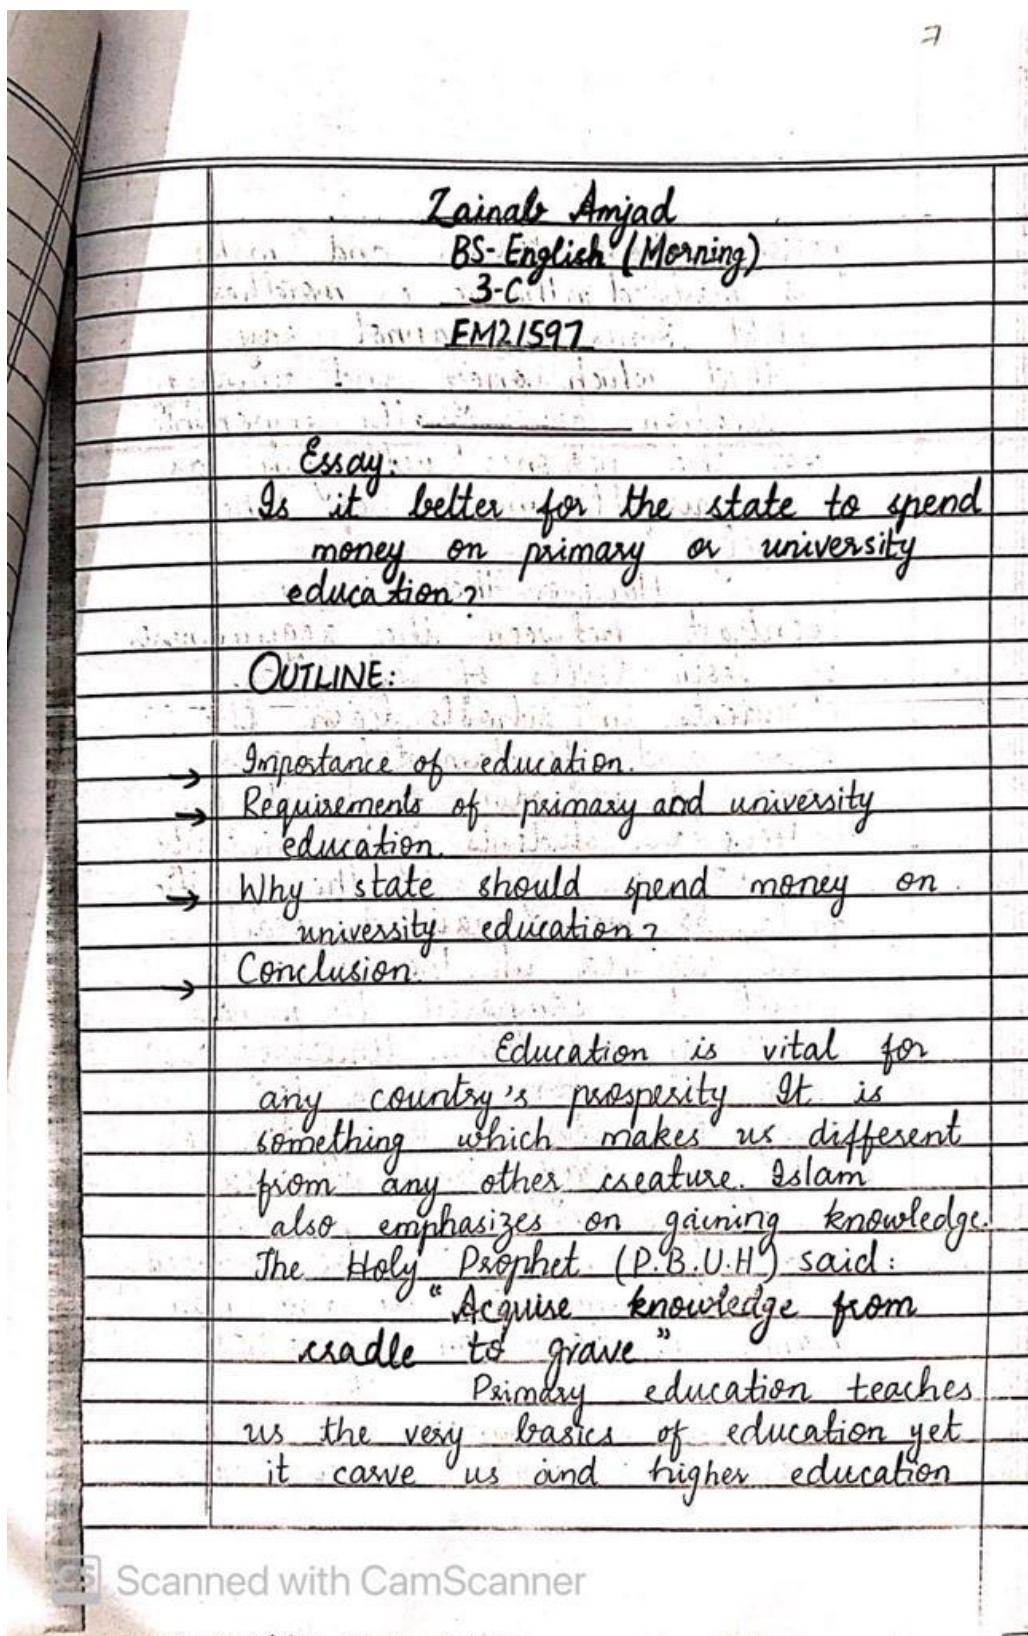 7
Zainab Amjad
BS-English (Morning)
3-C
EM21597
Essay:
Is it better for the state to spend
money on primary or university
education?
OUTLINE:
→ Importance of education.
→ Requirements of primary and university
education.
→ Why state should spend money on
university education?
→ Conclusion.
Education is vital for
any country's prosperity It is
something which makes us different
from any other creature. Islam
also emphasizes on gaining knowledge.
The Holy Prophet (P.B.U.H) said:
"Acquire knowledge from
cradle to grave"
Primary education teaches
us the very basics of education yet
it carve us and higher education
CS Scanned with CamScanner